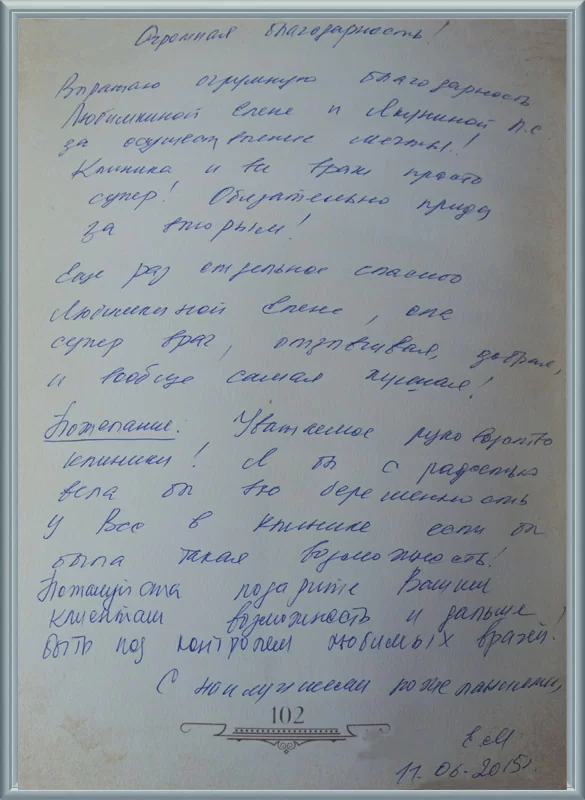 Огромная благодарность!
Выражаю огрумную благодарность
Любимкиной Елене и Якуниной Л.С.
за осуществление мечты!
Клиника и все врачи просто
супер! Обязательно приду
за вторым!
Еще раз отдельное спасибо
Любимкиной Елене, она
супер врач, отзывчивая, добрая,
и вообще самая лучшая!
Пожелание: Уважаемое руководство
клиники! Я бы с радостью
вела бы всю беременность
у Вас в клинике если бы
была такая возможность!
Пожалуйста подарите Вашим
клиентам возможность и дальше
быть под контролем любимых врачей!
С наилучшими пожеланиями,
102
Е.М.
11.06.2015г.